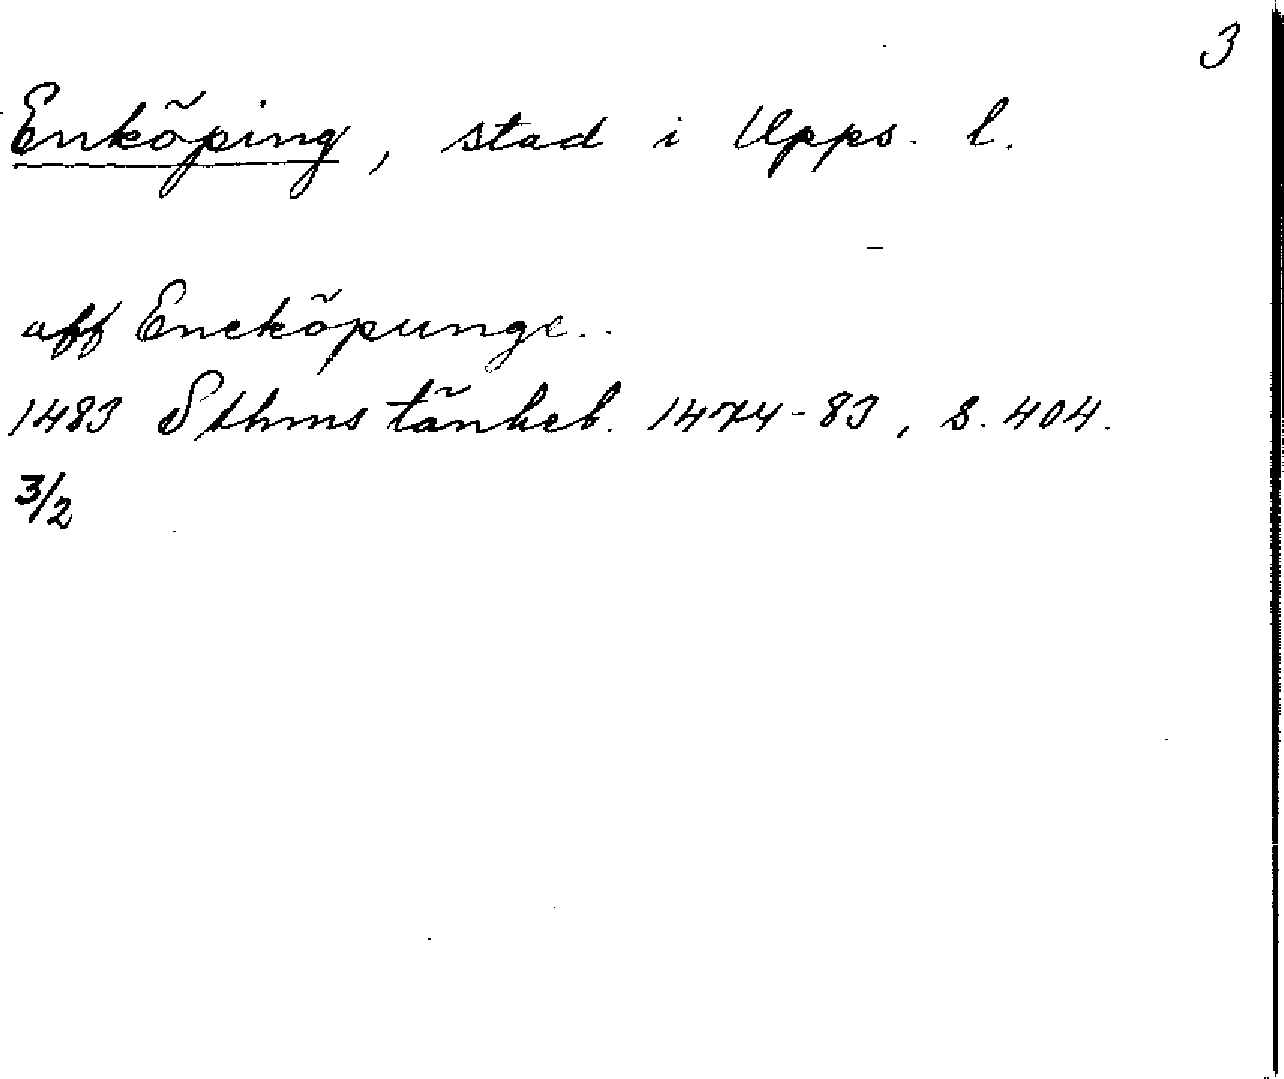 3
Enköping, stad i Upps. l.
aff Eneköpunge..
1483 Sthms tänkeb. 1474-83, s. 404.
3/2